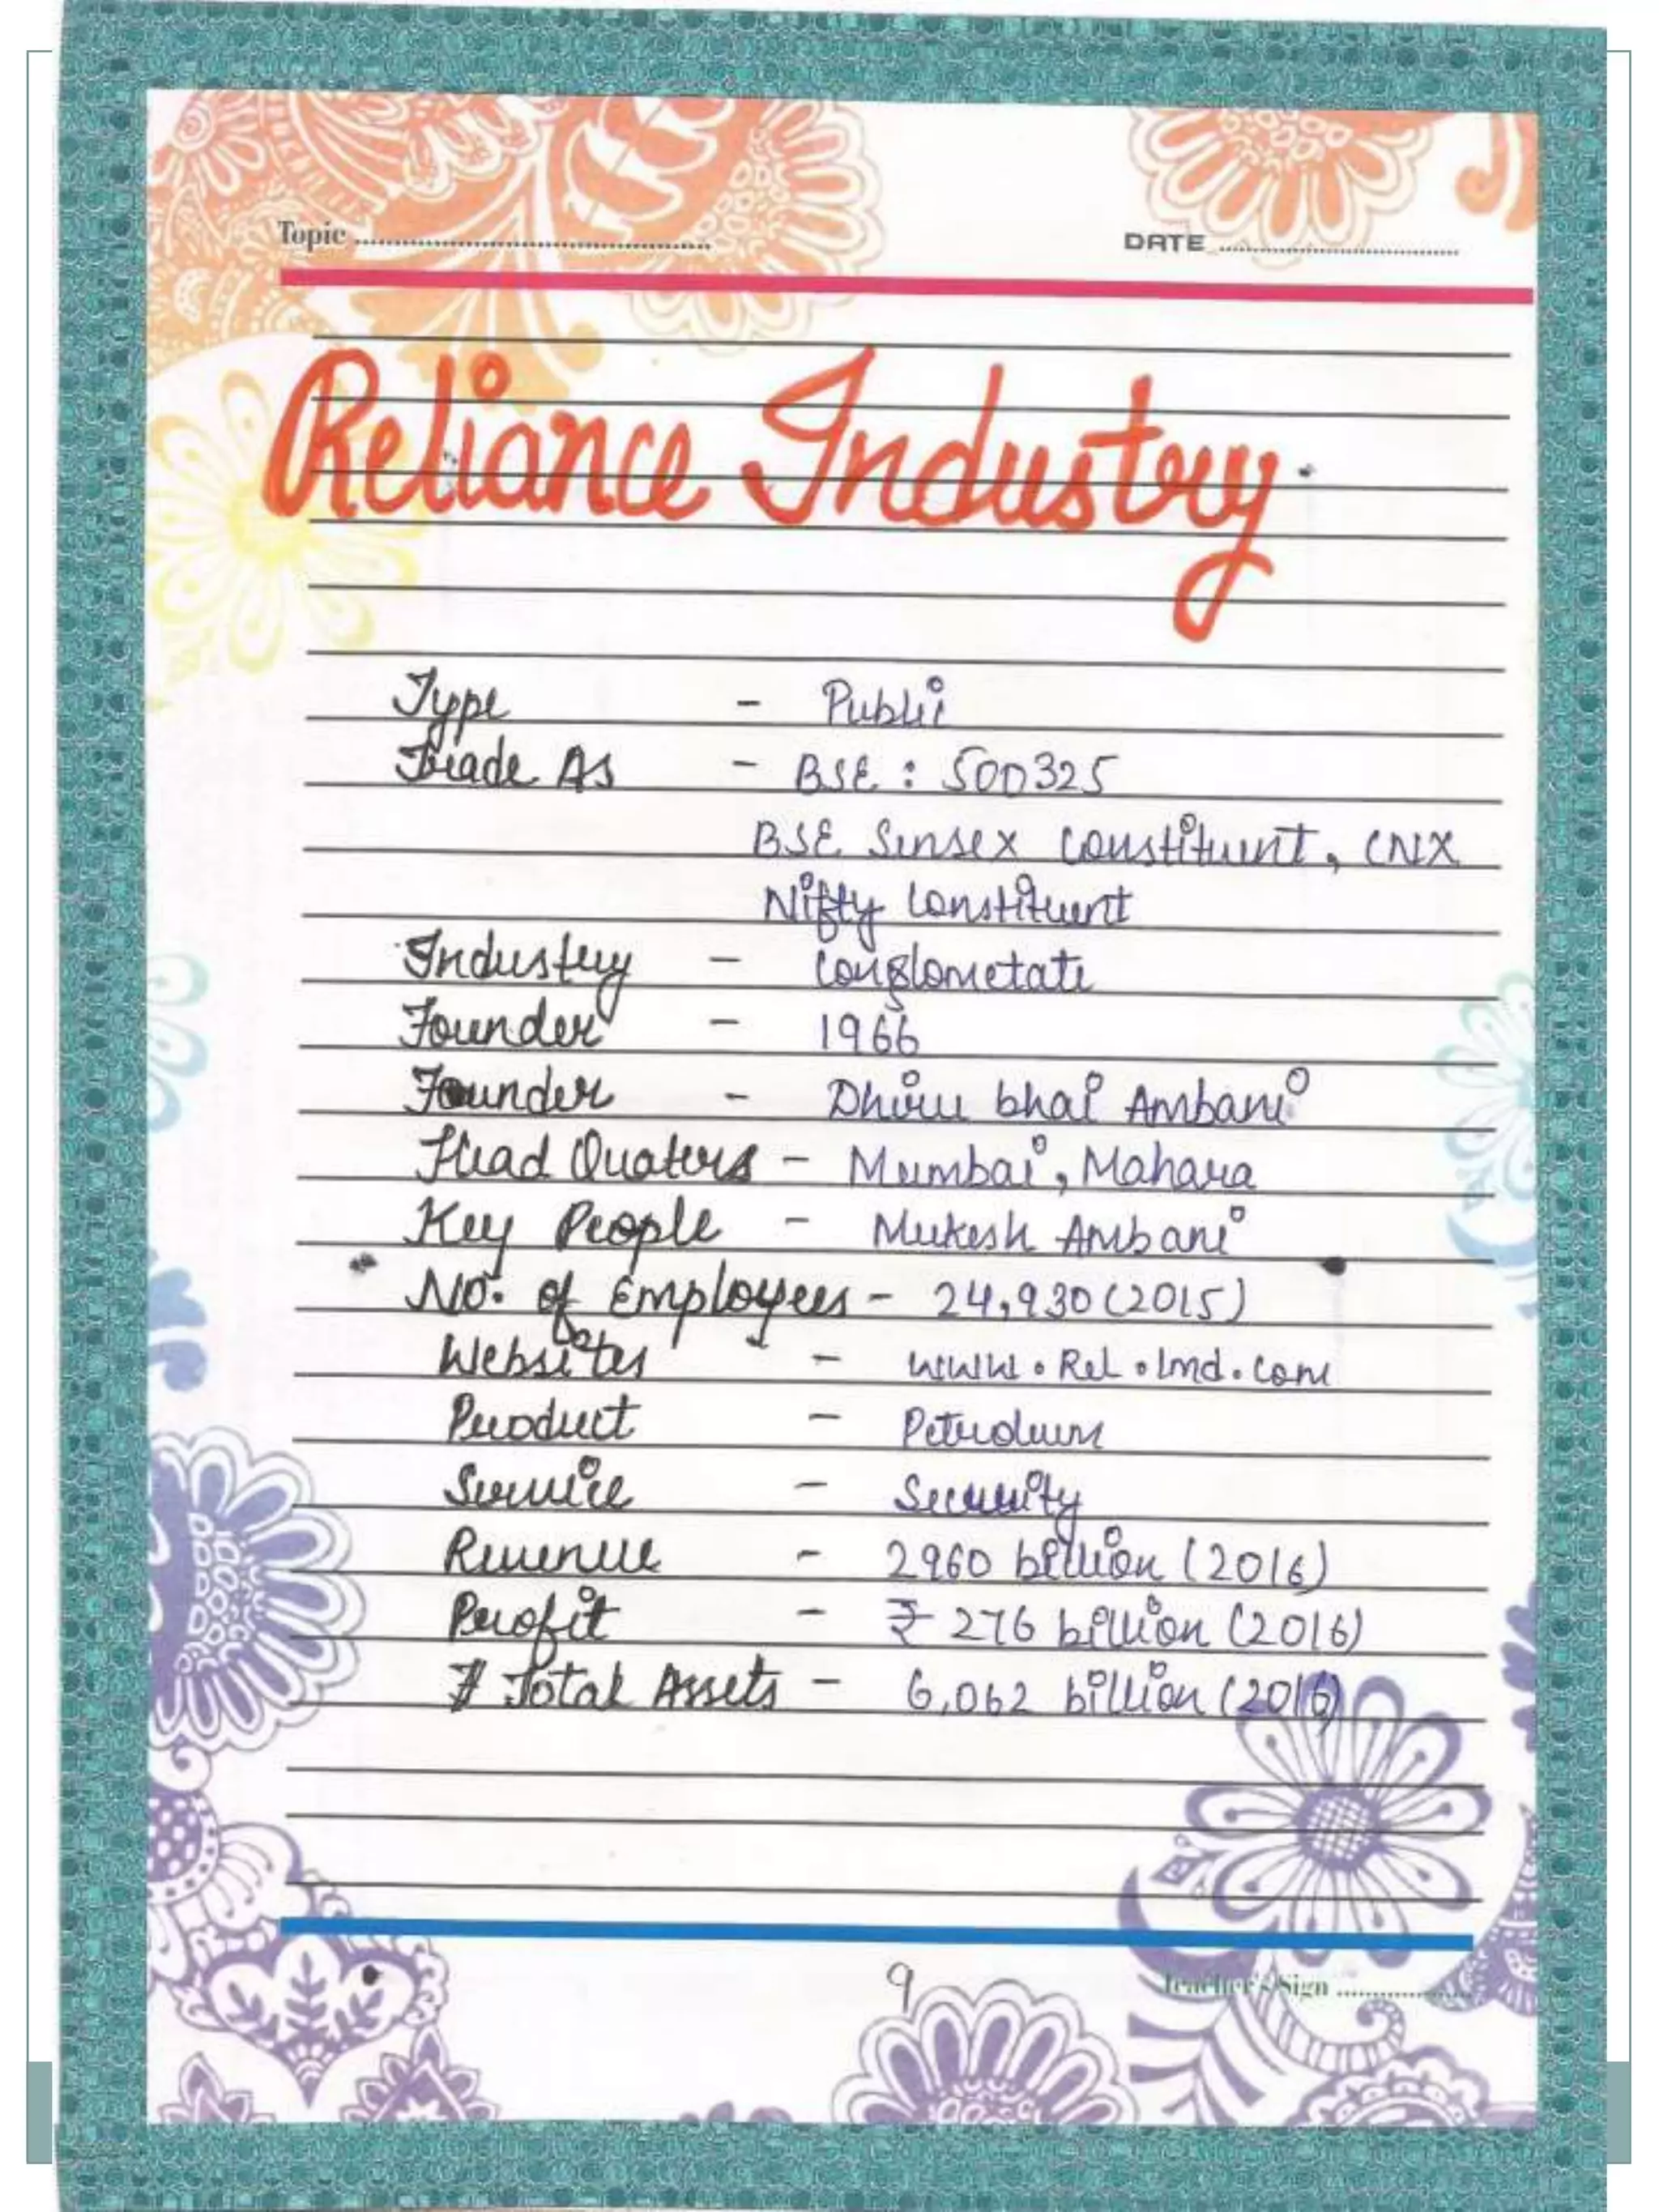 Topic ........ DATE ........
Reliance Industry
Type - Publi
Trade As - BSE : 500325
BSE Sensex Constituent, CNX
Nifty Constituent
Industry - Conglometate
Founder - 1966
Founder - Dhiru bhai Ambani
Head Quaters - Mumbai, Mahara
Key People - Mukesh Ambani
No. of Employees - 24,930 (2015)
Websites - www.Rel.Ind.com
Product - Petroleum
Service - Security
Revenue - 2960 billion (2016)
Profit - ₹ 276 billion (2016)
# Total Assets - 6,062 billion (2016)
9
Teacher's Sign ........